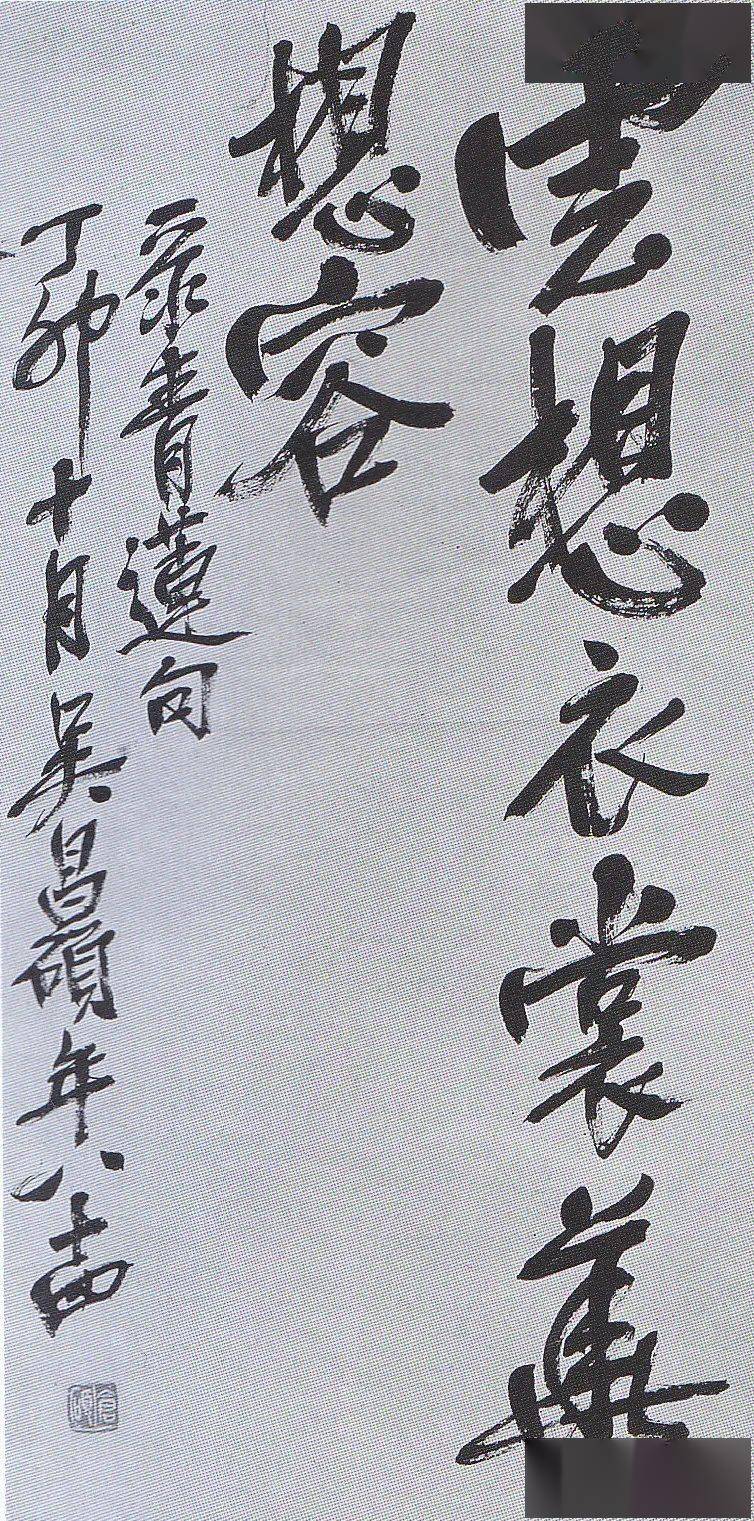 雲想衣裳華
想容
录青蓮句
丁卯十月吳昌碩年八十四
倉碩